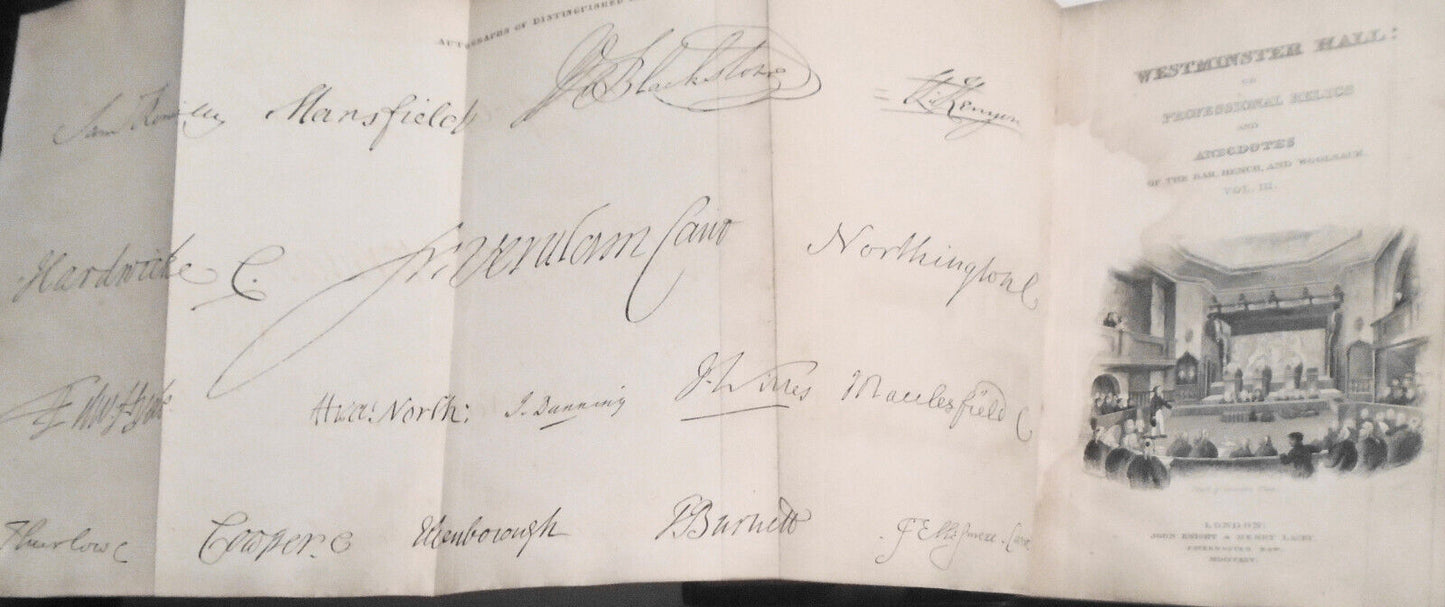 AUTOGRAPHS OF DISTINGUISHED
Mansfield W Blackstone Kenyon
Hardwicke C. Fr. Verulam Canc Northington C
Edw Hyde North: J. Dunning J. Willes Macclesfield C
Thurlow C Cowper. C Ellenborough T Burnett
WESTMINSTER HALL:
OR
PROFESSIONAL RELICS
AND
ANECDOTES
OF THE BAR, BENCH, AND WOOLSACK.
VOL. III.
LONDON:
JOHN KNIGHT & HENRY LACEY.
PATERNOSTER ROW.
MDCCCXXV.